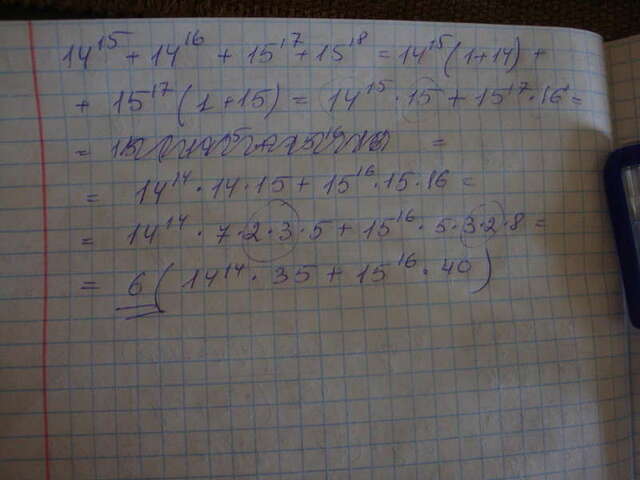 14¹⁵ + 14¹⁶ + 15¹⁷ + 15¹⁸ = 14¹⁵(1+14) +
+ 15¹⁷(1+15) = 14¹⁵·15 + 15¹⁷·16 =
= =
= 14¹⁴·14·15 + 15¹⁶·15·16 =
= 14¹⁴·7·2·3·5 + 15¹⁶·5·3·2·8 =
= 6(14¹⁴·35 + 15¹⁶·40)